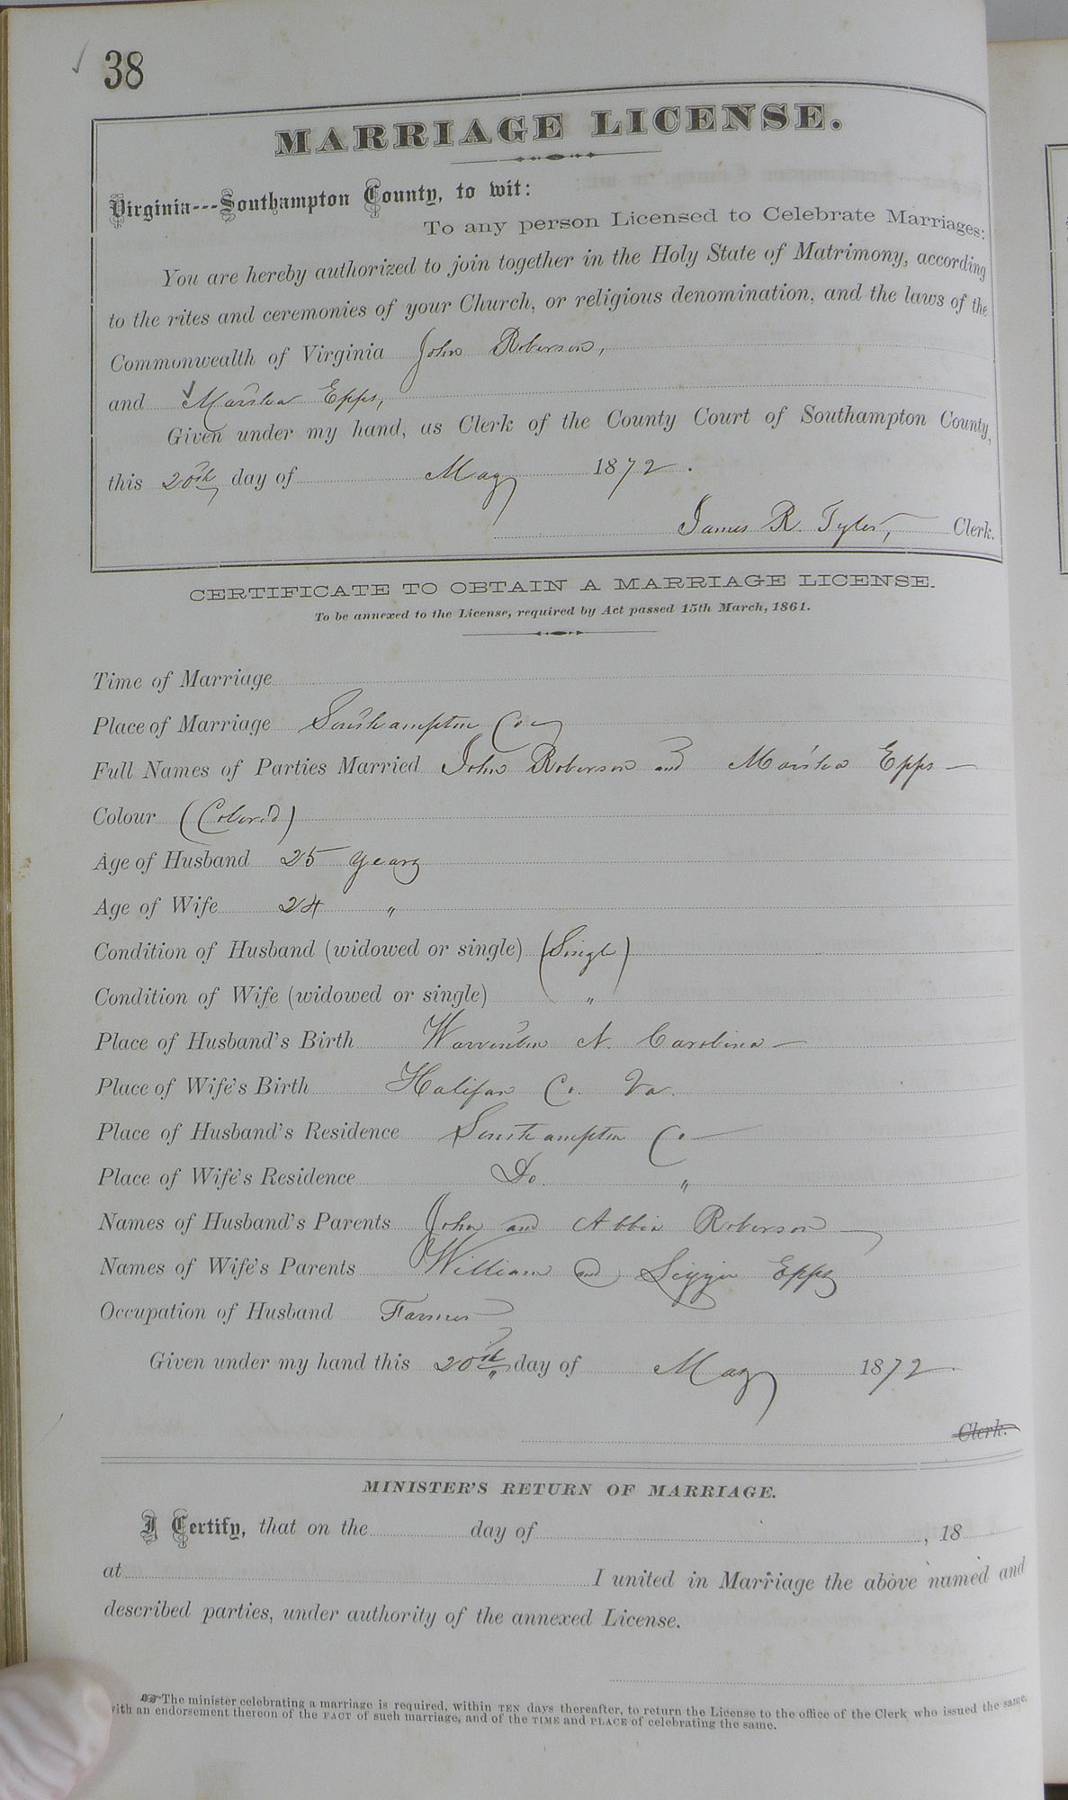 38
MARRIAGE LICENSE.
Virginia---Southampton County, to wit:
To any person Licensed to Celebrate Marriages:
You are hereby authorized to join together in the Holy State of Matrimony, according
to the rites and ceremonies of your Church, or religious denomination, and the laws of the
Commonwealth of Virginia John Roberson,
and Epps,
Given under my hand, as Clerk of the County Court of Southampton County,
this 20th day of May 1872.
James R. Tyler, Clerk.
CERTIFICATE TO OBTAIN A MARRIAGE LICENSE.
To be annexed to the License, required by Act passed 15th March, 1861.
Time of Marriage
Place of Marriage Southampton Co
Full Names of Parties Married John Roberson and Epps
Colour (Coler'd)
Age of Husband 25 years
Age of Wife 24 "
Condition of Husband (widowed or single) (Single)
Condition of Wife (widowed or single) "
Place of Husband's Birth Warrenton N. Carolina
Place of Wife's Birth Halifax Co. Va.
Place of Husband's Residence Southampton Co
Place of Wife's Residence Do. "
Names of Husband's Parents John and Abbie Roberson
Names of Wife's Parents William and Epps
Occupation of Husband Farmer
Given under my hand this 20th day of May 1872.
Clerk.
MINISTER'S RETURN OF MARRIAGE.
I Certify, that on the day of , 18
at I united in Marriage the above named and
described parties, under authority of the annexed License.
The minister celebrating a marriage is required, within TEN days thereafter, to return the License to the office of the Clerk who issued the same,
with an endorsement thereon of the FACT of such marriage, and of the TIME and PLACE of celebrating the same.